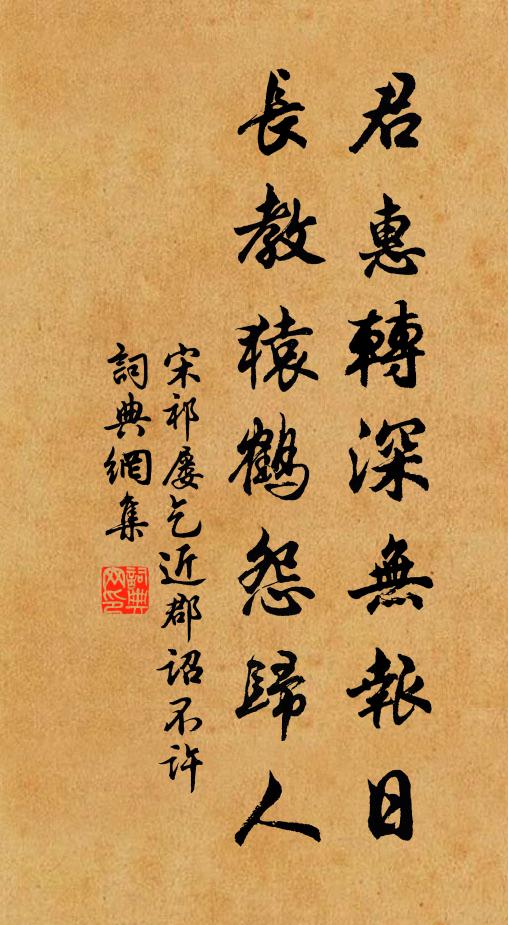 君惠轉深無報日
長教猿鶴怨歸人
宋祁屢乞近郡詔不許
詞典網集
詞典
网印